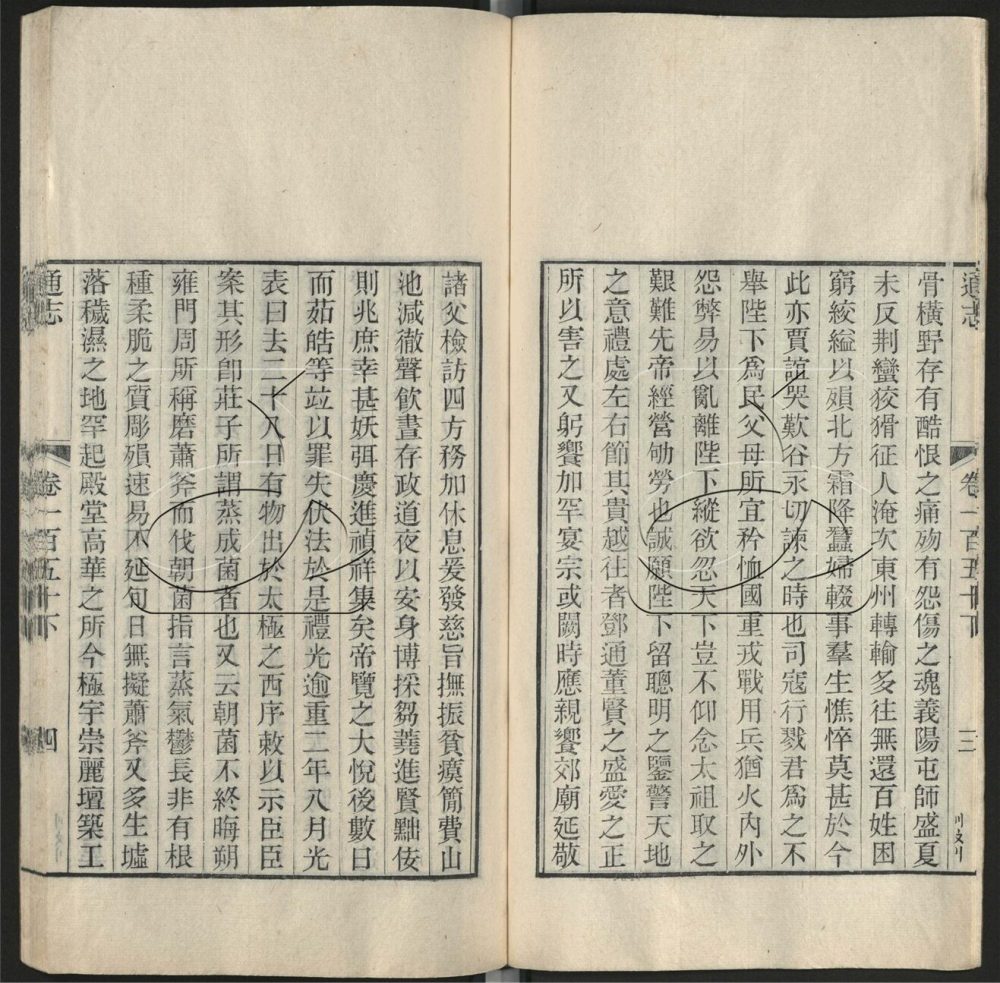 通志
卷一百五十下
三
骨橫野存有酷恨之痛歿有怨傷之魂義陽屯師盛夏
未反荆蠻狡猾征人淹次東州轉輸多往無還百姓困
窮絞縊以殞北方霜降蠶婦輟事羣生憔悴莫甚於今
此亦賈誼哭歎谷永切諫之時也司寇行戮君爲之不
舉陛下爲民父母所宜矜恤國重戎戰用兵猶火內外
怨弊易以亂離陛下縱欲忽天下豈不仰念太祖取之
艱難先帝經營劬勞也誠願陛下留聰明之鑒警天地
之意禮處左右節其貴越往者鄧通董賢之盛愛之正
所以害之又躬饗加罕宴宗或闕時應親饗郊廟延敬
諸父檢訪四方務加休息爰發慈旨撫振貧瘼簡費山
池減徹聲飮晝存政道夜以安身博採芻蕘進賢黜佞
則兆庶幸甚妖弭慶進禎祥集矣帝覽之大悅後數日
而茹皓等竝以罪失伏法於是禮光逾重二年八月光
表曰去二十八日有物出於太極之西序敕以示臣臣
案其形卽莊子所謂蒸成菌者也又云朝菌不終晦朔
雍門周所稱磨蕭斧而伐朝菌指言蒸氣鬱長非有根
種柔脆之質彫殞速易不延旬日無擬蕭斧又多生墟
落穢濕之地罕起殿堂高華之所今極宇崇麗壇築工
通志
卷一百五十下
四